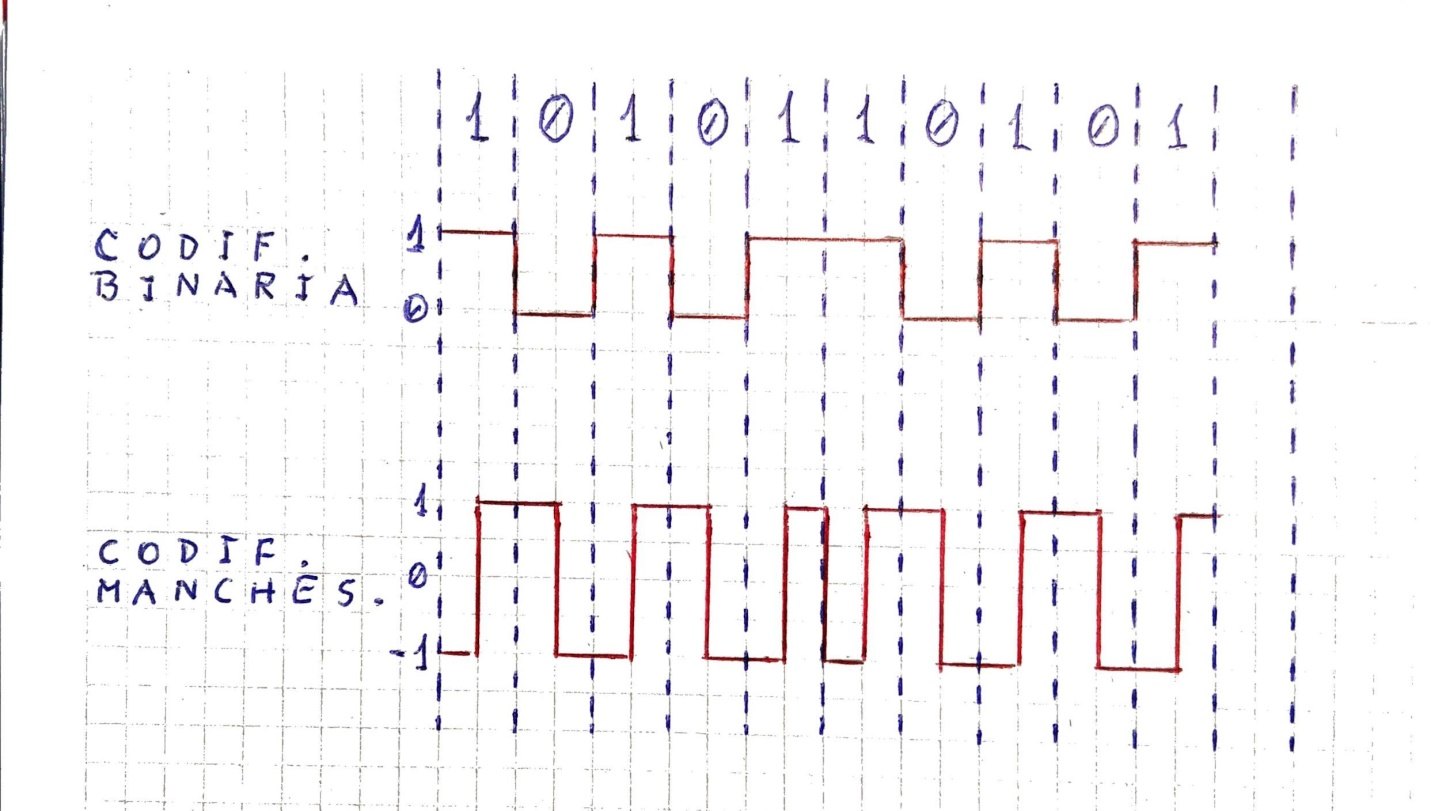 1 0 1 0 1 1 0 1 0 1
CODIF. 1
BINARIA 0
1
CODIF. 0
MANCHES.
-1